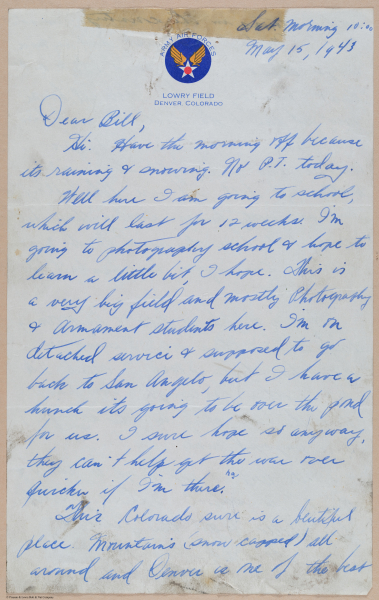 Sat. Morning 10:00
May 15, 1943
ARMY AIR FORCES
LOWRY FIELD
DENVER, COLORADO
Dear Bill,
Hi. Have the morning off because
its raining & snowing. No P.T. today.
Well here I am going to school,
which will last for 12 weeks. I'm
going to photography school & hope to
learn a little bit, I hope. This is
a very big field and mostly Photography
& Armament students here. I'm on
detached service & supposed to go
back to San Angelo, but I have a
hunch its going to be over the pond
for us. I sure hope so anyway,
they can't help get the war over
quicker if I'm there. "ha"
This Colorado sure is a beutiful
place. Mountains (snow capped) all
around and Denver is one of the best